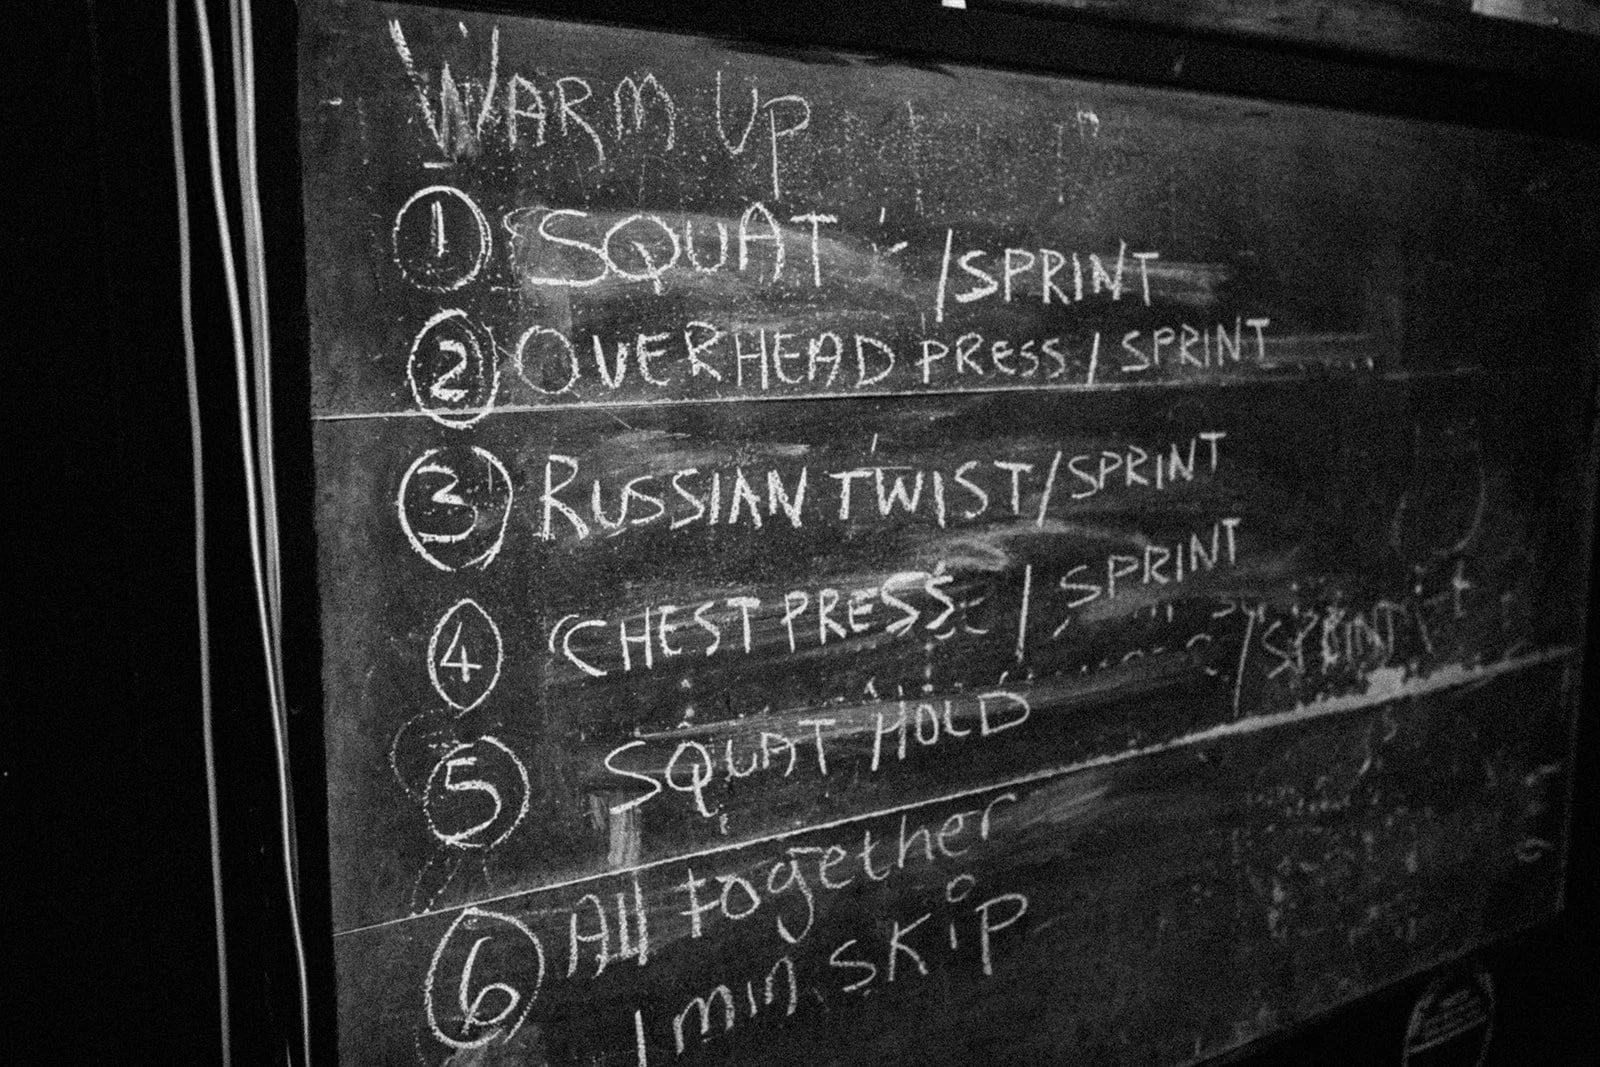 WARM UP
1 SQUAT /SPRINT
2 OVERHEAD PRESS / SPRINT
3 RUSSIAN TWIST/SPRINT
4 CHEST PRESS / SPRINT
5 SQUAT HOLD /SPRINT
6 All together
1 min SKIP